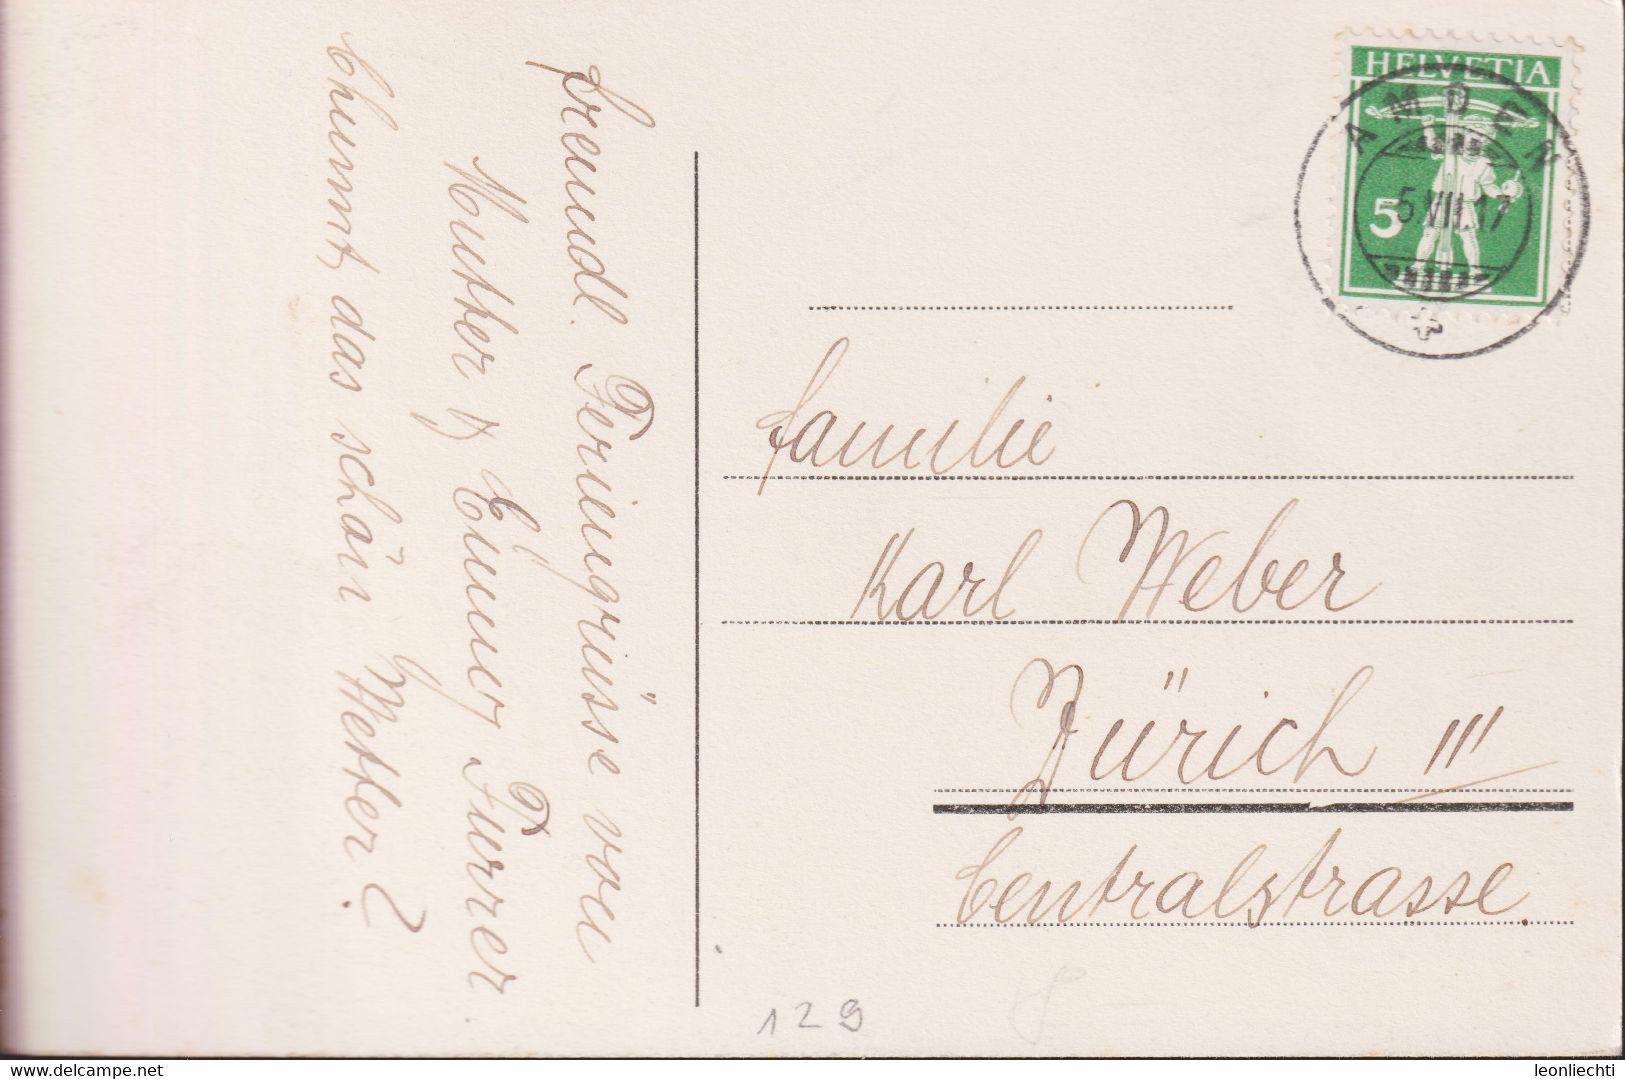 freundl. Feriengrüsse von
Mutter & Emmy Furrer
Chunnt das schön Wetter?
HELVETIA
5
AMDEN
5.VII.17
Familie
Karl Weber
Zürich III
Centralstrasse.
129
leonliechti